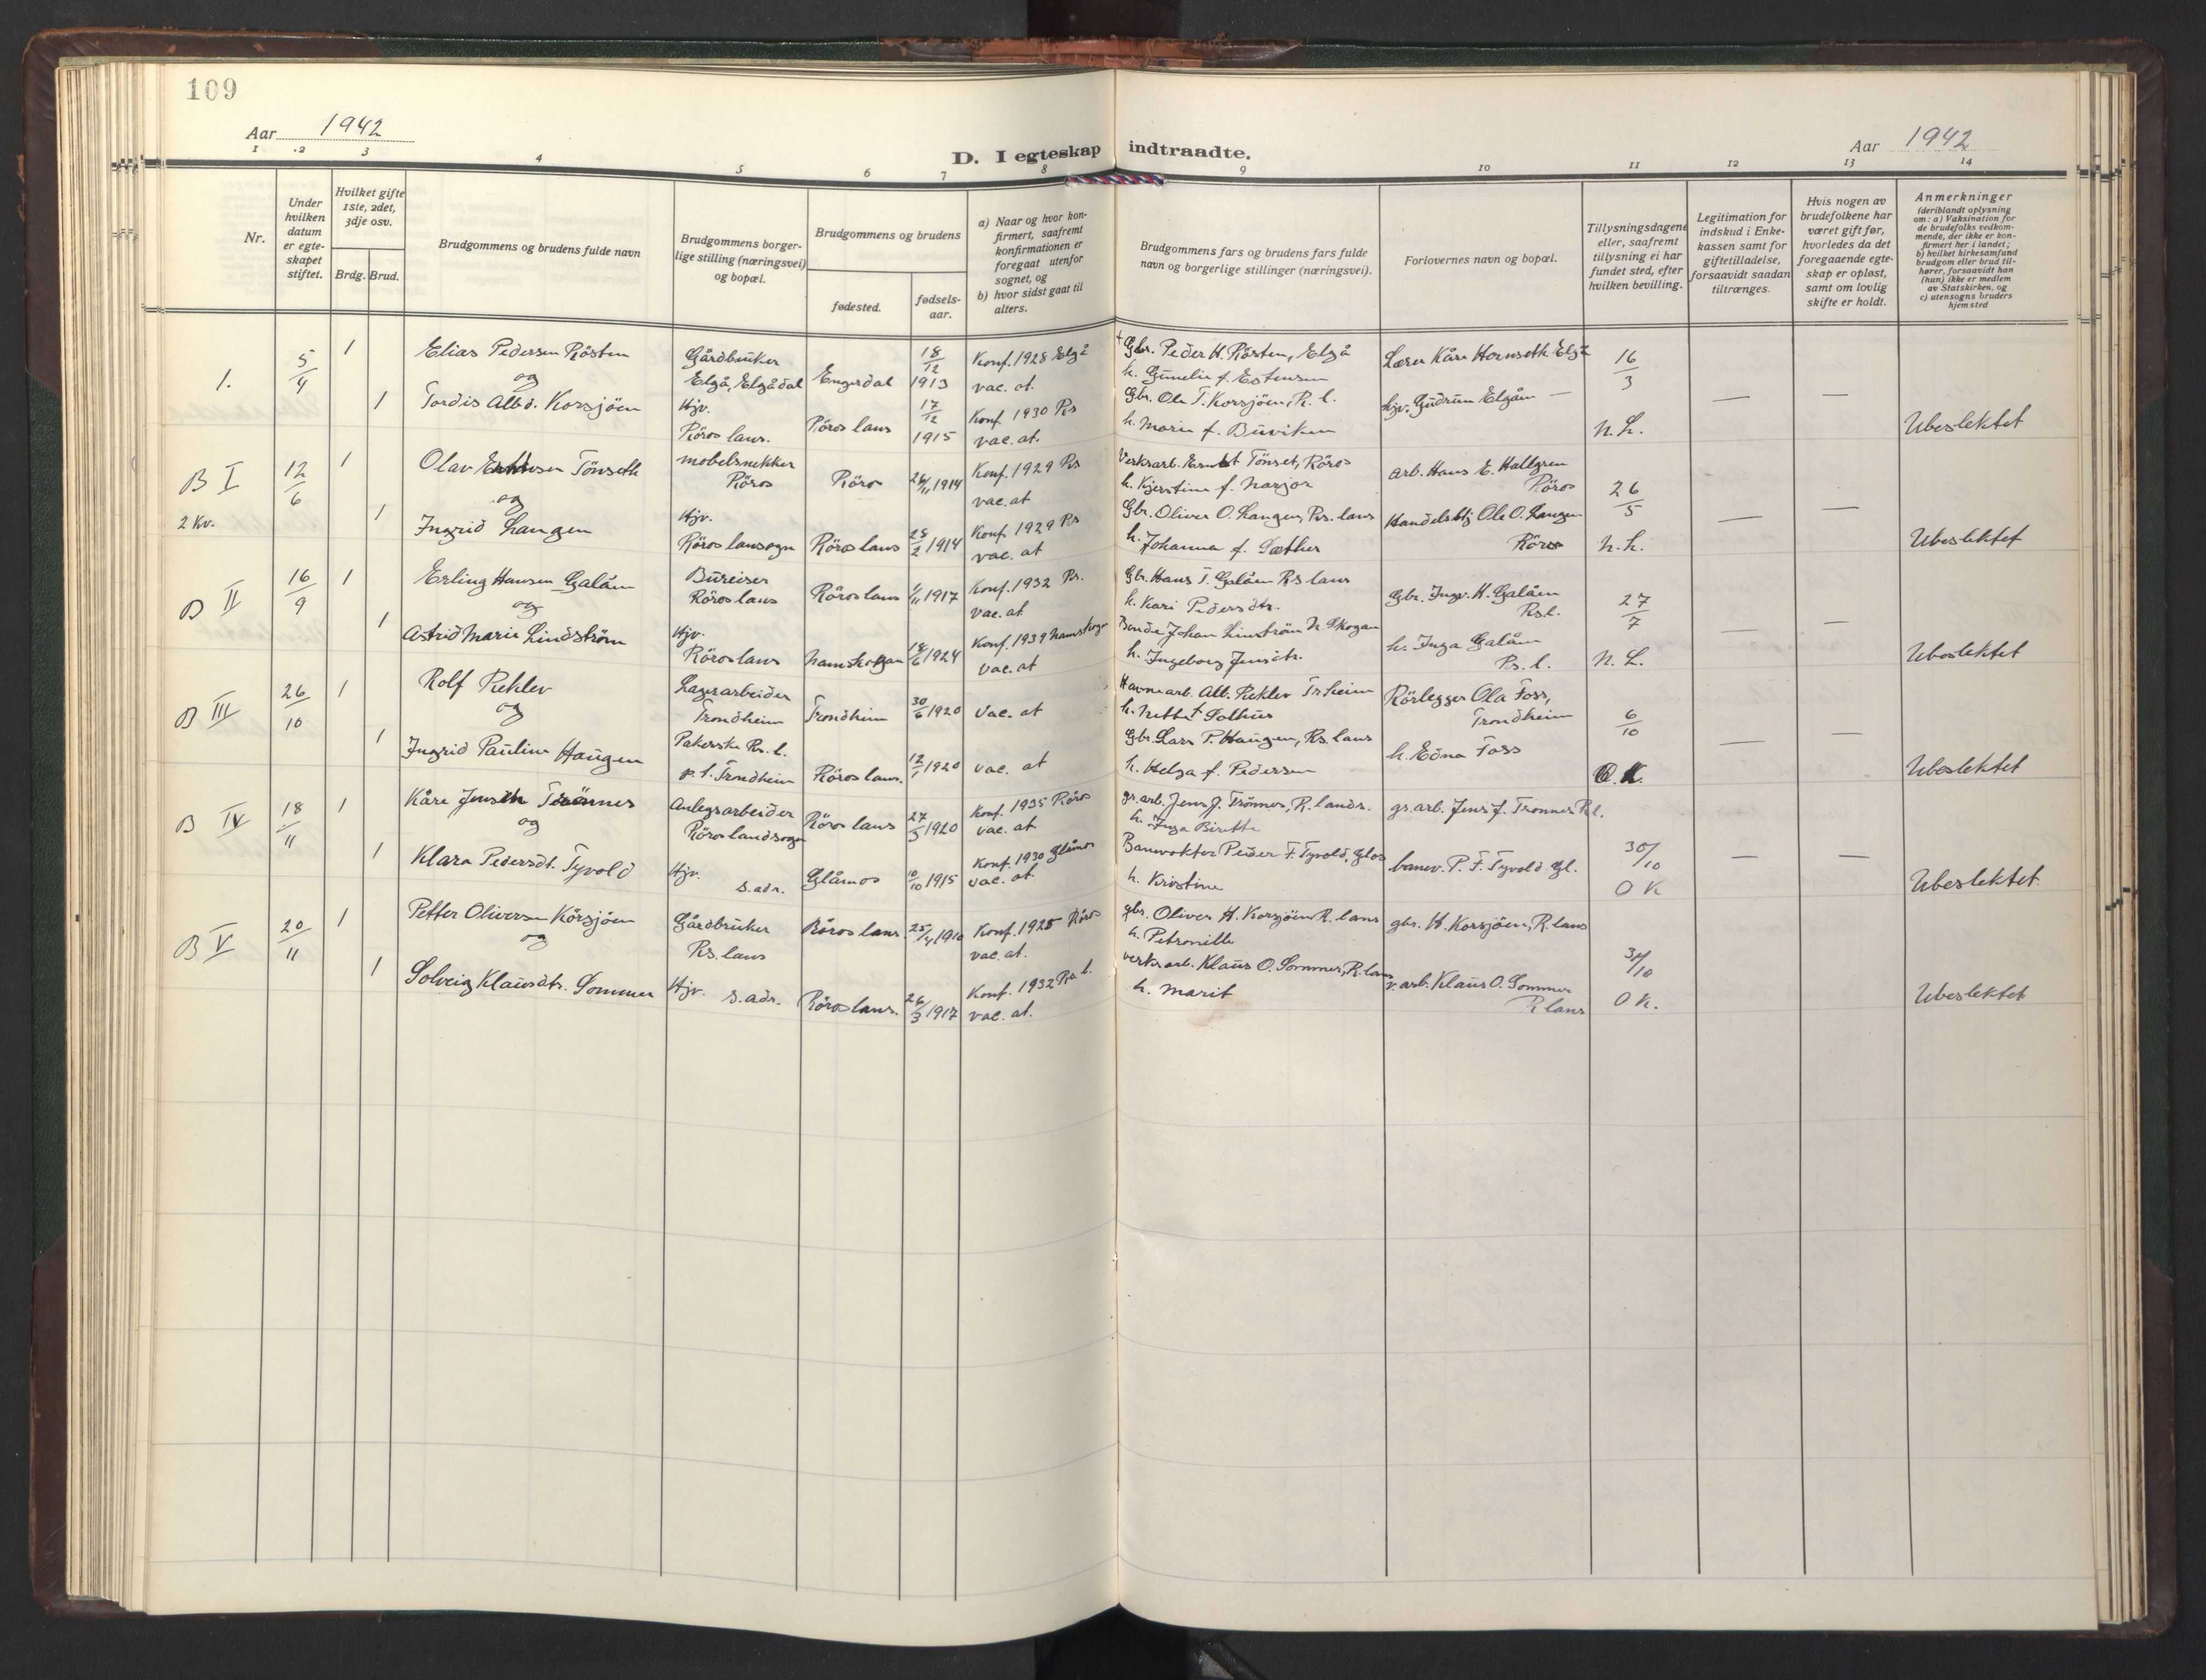 109
Aar 1942
Aar 1942
D. I egteskap indtraadte.
1 2 3 4 5 6 7 8 9 10 11 12 13 14
Nr.
Under hvilken datum er egte-skapet stiftet.
Hvilket gifte 1ste, 2det, 3dje osv.
Brdg. Brud.
Brudgommens og brudens fulde navn
Brudgommens borger-lige stilling (næringsvei) og bopæl.
Brudgommens og brudens
fødested.
fødsels-aar.
a) Naar og hvor kon-firmert, saafremt konfirmationen er foregaat utenfor sognet, og
b) hvor sidst gaat til alters.
Brudgommens fars og brudens fars fulde navn og borgerlige stillinger (næringsvei).
Forlovernes navn og bopæl.
Tillysningsdagene eller, saafremt tillysning ei har fundet sted, efter hvilken bevilling.
Legitimation for indskud i Enke-kassen samt for giftetilladelse, forsaavidt saadan tiltrænges.
Hvis nogen av brudefolkene har været gift før, hvorledes da det foregaaende egte-skap er opløst, samt om lovlig skifte er holdt.
Anmerkninger
(deriblandt oplysning om: a) Vaksination for de brudefolks vedkom-mende, der ikke er kon-firmert her i landet; b) hvilket kirkesamfund brudgom eller brud til-hører, forsaavidt han (hun) ikke er medlem av Statskirken, og c) utensogns bruders hjemsted
1. 5/4 1 Elias Pedersen Røsten Gårdbruker Elgå, Elgådal Engerdal 18/12 1913 Konf. 1928 Elgå vac. at. + Gbr. Peder H. Røsten, Elgå h. Gunelie f. Estensen Lærer Kåre Hornseth Elgå 16/3
og
1 Tordis Alb d. Korsjøen Hjv. Röros lans. Röros lans 17/12 1915 Konf. 1930 Rs vac. at. Gbr. Ole T. Korsjöen, R. l. h. Marie f. Buviken hjv. Gudrun Elgåen — N. L. — — Ubeslektet
B I 12/6 1 Olav Tönseth møbelsnekker Röros Röros 26/11 1914 Konf. 1929 Rs vac. at Verksarb. Tönset, Röros h. Kjerstine f. Narjor arb. Hans E. Hallgren Röros 26/5
og
2 Kv. 1 Ingrid Langen Hjv. Röros lansogn Röros lans 25/2 1914 Konf. 1929 Rs vac. at Gbr. Oliver O. Langen, Rs. lans h. Johanna f. Sæther Handelsbtj Ole O. Langen Röros N. L. — — Ubeslektet
B II 16/9 1 Erling Hansen Galåen Bureiser Röros lans Röros lans 1/11 1917 Konf. 1932 Rs. vac. at Gbr. Hans T. Galåen Rs lans h. Kari Pedersdtr. Gbr. Ingv. H. Galåen Rs.l. 27/7
og
1 Astrid Marie Lindström Hjv. Röros lans Namskogan 18/6 1924 Konf. 1939 Namskogn vac. at Bonde Johan Linström N. Skogan h. Ingeborg Jensdtr. h. Inga Galåen Rs. l. N. L. — — Ubeslektet
B III 26/10 1 Rolf Reklev Lagerarbeider Trondheim Trondheim 30/6 1920 Vac. at Havnearb. Alb. Reklev Tr.heim h. Nette + Solhus Rörlegger Ola Foss, Trondheim 6/10
og
1 Ingrid Pauline Haugen Pakerske Rs. l. p. t. Trondheim Röros lans. 12/1 1920 vac. at Gbr. Lars P. Haugen, Rs. lans h. Helga f. Pedersen h. Edna Foss O. K. — — Ubeslektet
B IV 18/11 1 Kåre Jensen Trönnes Anlegsarbeider Röros landsogn Röros lans 27/5 1920 Konf. 1935 Röros vac. at. gr. arb. Jens J. Trönnes, R. lands. h. Inga Birette gr. arb. Jens J. Trønnes R l.
og
1 Klara Pedersdt. Tyvold Hjv. s. adr. Glåmos 10/10 1915 Konf. 1930 Glåmos vac. at. Banevokter Peder F. Tyvold, Glos h. Kristine banev. P. F. Tyvold Gl. 30/10 O K — — Ubeslektet
B V 20/11 1 Petter Oliversen Korsjöen Gårdbruker Rs. lans Röros lans. 25/4 1910 Konf. 1925 Röros vac. at. gbr. Oliver H. Korsjöen R. lans h. Petronille gbr. H. Korsjöen, R. lans
og
1 Solveig Klausdtr. Sommer Hjv. s. adr. Röros lans. 26/3 1917 Konf. 1932 Rs l. vac. at. verksarb. Klaus O. Sommer, R. lans h. Marit v. arb. Klaus O. Sommer R lans 30/10 O K. Ubeslektet